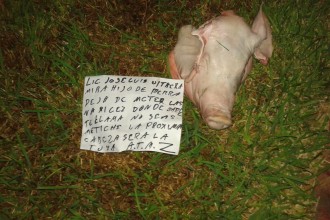 LIC JOSE LUIS
MIRA HIJO DE PERRA
DEJA DE METER LAS
NARICES DONDE NO TE
LLAMAN NO SEAS
METICHE LA PROXIMA
CABEZA SERA LA
TUYA ATA Z